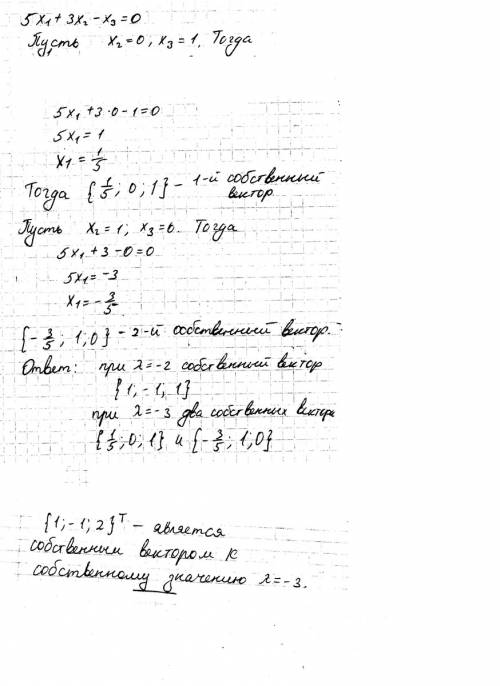 5x₁ + 3x₂ - x₃ = 0
Пусть x₂ = 0, x₃ = 1. Тогда
5x₁ + 3·0 - 1 = 0
5x₁ = 1
x₁ = 1/5
Тогда {1/5; 0; 1} - 1-й собственный
вектор
Пусть x₂ = 1; x₃ = 0. Тогда
5x₁ + 3 - 0 = 0
5x₁ = -3
x₁ = -3/5
{-3/5; 1; 0} - 2-й собственный вектор.
Ответ: при λ = -2 собственный вектор
{1; -1; 1}
при λ = -3 два собственных вектора
{1/5; 0; 1} и {-3/5; 1; 0}
{1; -1; 2}ᵀ - является
собственным вектором к
собственному значению λ = -3.